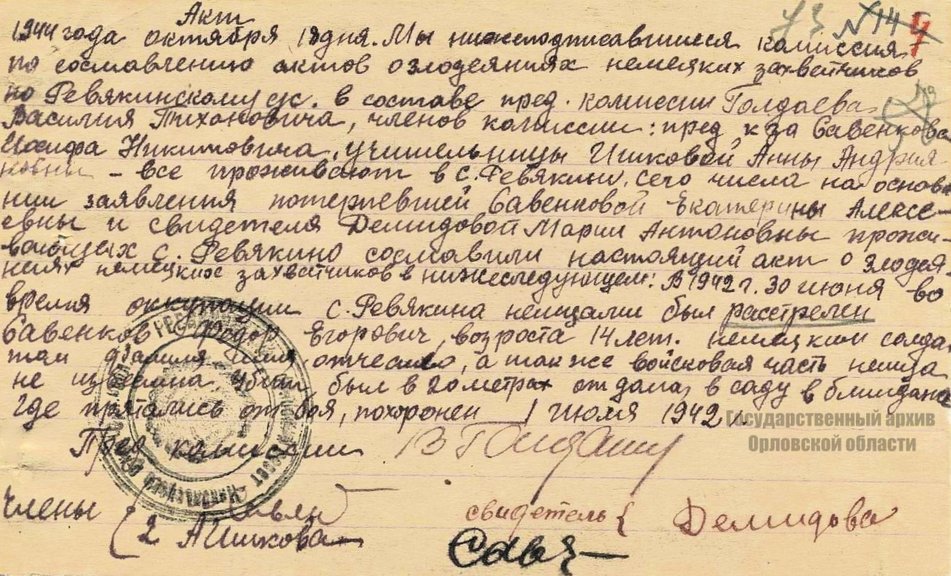 Акт
1944 года октября 18 дня. Мы нижеподписавшиеся комиссия
по составлению актов о злодеяниях немецких захвейчиков
по Ревякинскому с/с. в составе пред. комиссии Голдаева
Василия Тихоновича, членов комиссии: пред. к-за Савенкова
Иосифа Никитовича, учительницы Ишковой Анны Андрия
новны - все проживают в с. Ревякино, сего числа на основа
нии заявления потерпевшей Савенковой Екатерины Алексе-
евны и свидетеля Демидовой Марии Антоновны прожи-
вающих с. Ревякино составили настоящий акт о злодея
ниях немецких захвейчиков в нижеследующем: В 1942 г. 30 июня во
время оккупации с. Ревякина немцами был расстрелен
Савенков Егорович, возроста 14 лет. немецкий солда
там фамилия отчество, а так же войсковая часть немца
не известна. был в 20 метрах от дома в саду в блиндаже
где прятались от боя, похоронен 1 июля 1942 г.
Пред комиссии В Голдаев
члены свидетель Демидова
2 АИшкова
Государственный архив
Орловской области
№ 14